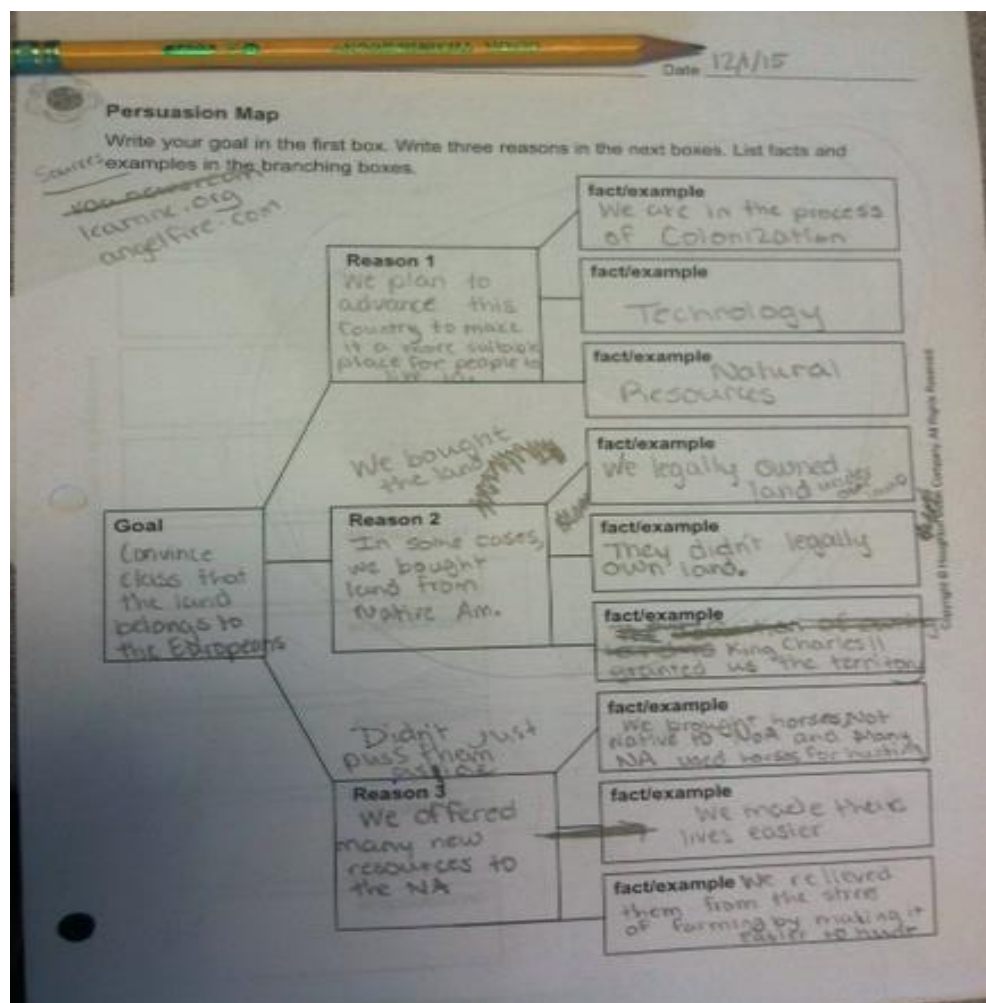 Date 12/1/15
Persuasion Map
Write your goal in the first box. Write three reasons in the next boxes. List facts and
examples in the branching boxes.
Sources
learnnc.org
angelfire.com
Goal
Convince
class that
the land
belongs to
the Europeans
Reason 1
We plan to
advance this
Country to make
it a more suitable
place for people to
live in.
fact/example
We are in the process
of Colonization
fact/example
Technology
fact/example Natural
Resources
We bought
the land
Reason 2
In some cases,
we bought
land from
Native Am.
fact/example
We legally owned
land under
our laws
fact/example
They didn't legally
own land.
fact/example
King Charles II
granted us the territory
Didn't just
puss them
aside
Reason 3
We offered
many new
resources to
the NA
fact/example
We brought horses, Not
native to NoA and Many
NA used horses for hunting
fact/example
We made their
lives easier
fact/example We relieved
them from the stress
of farming by making it
easier to hunt
Copyright © Houghton Mifflin Company. All Rights Reserved.